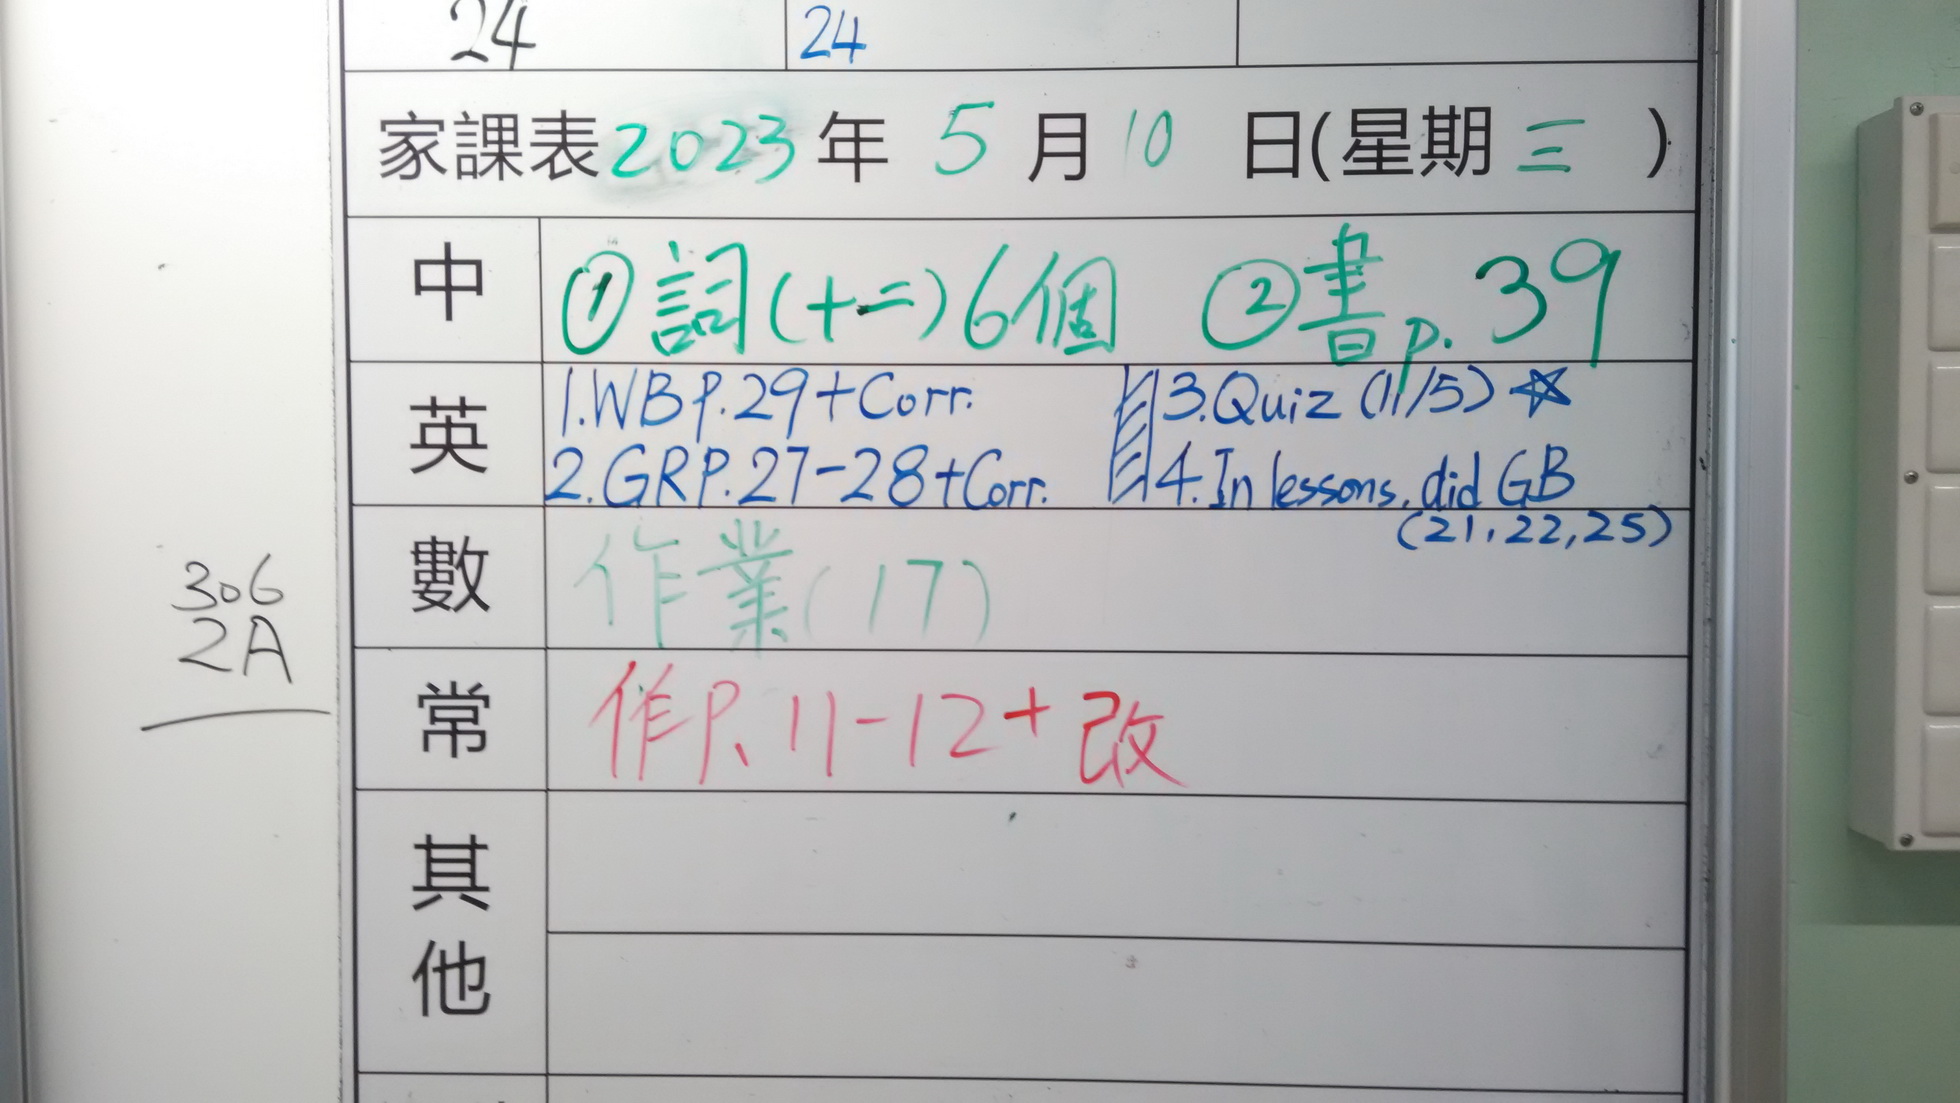 24 24
家課表2023年 5月10日(星期三)
中 ①詞(十二)6個 ②書p.39
英 1.WB P.29+Corr. 3.Quiz (11/5) ☆
2.GR P.27-28+Corr. 4.In lessons, did GB
(21,22,25)
數 作業(17)
306
2A
常 作P.11-12+改
其
他